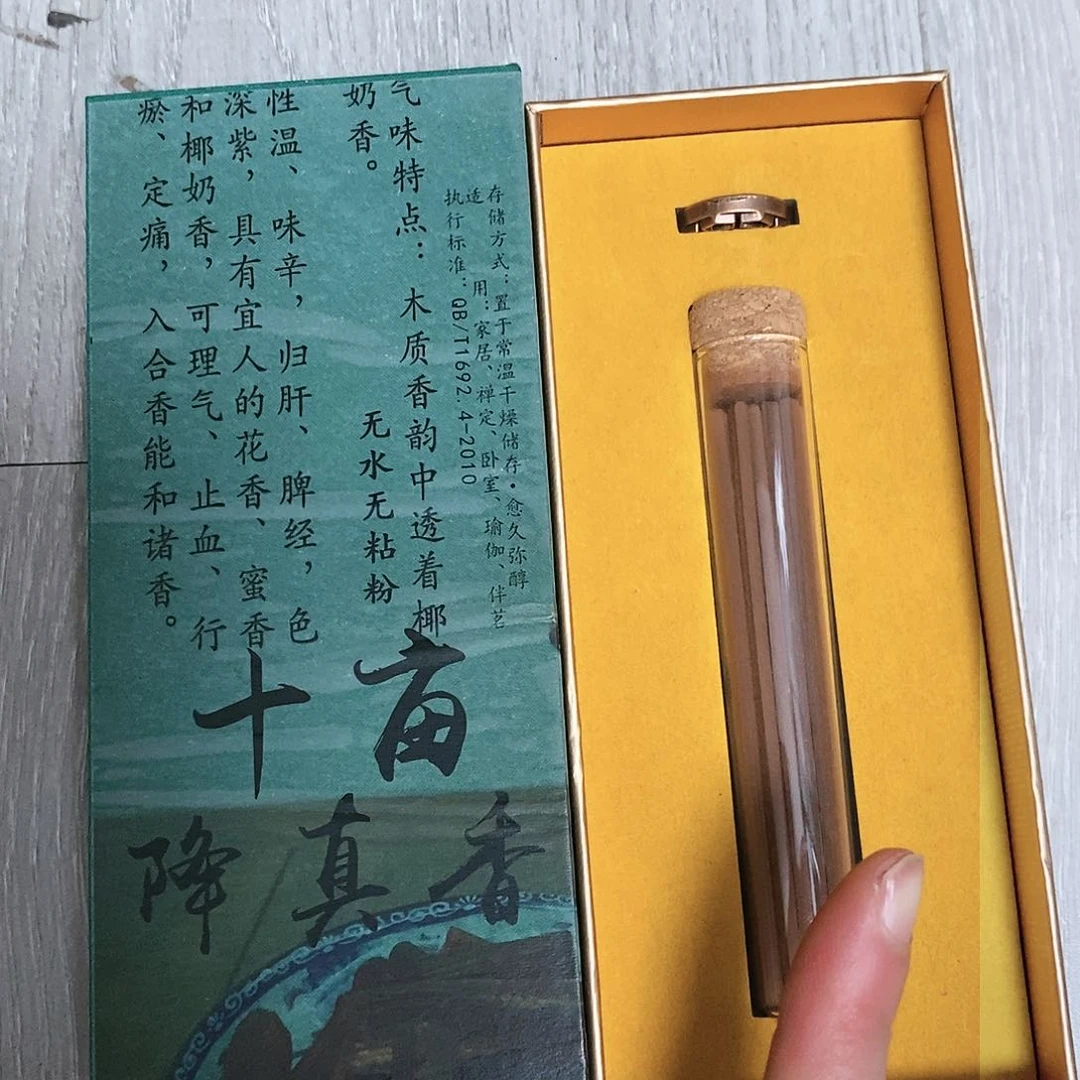 存储方式：置于常温干燥储存·愈久弥醇
适 用：家居、禅定、卧室、瑜伽、伴茗
执行标准：QB/T1692.4-2010
气味特点：木质香韵中透着椰
奶香。
无水无粘粉
性温、味辛，归肝、脾经，色
深紫，具有宜人的花香、蜜香
和椰奶香，可理气、止血、行
瘀、定痛，入合香能和诸香。
十亩
降真香